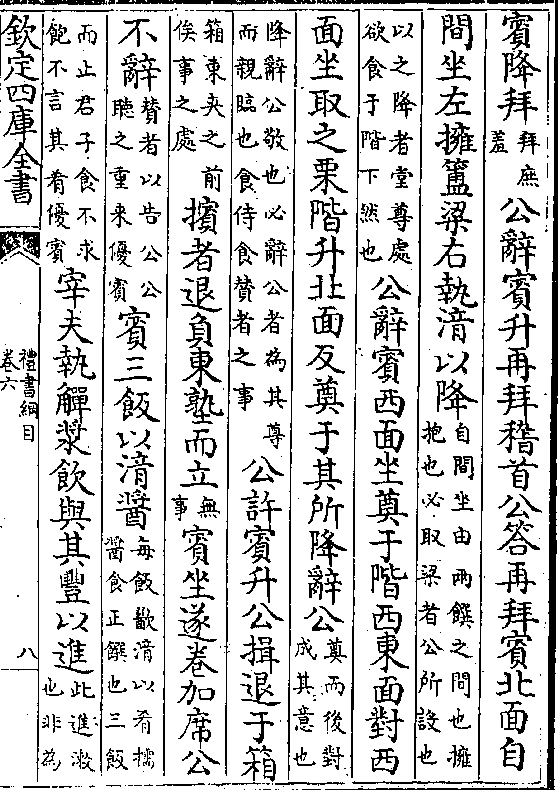 賓降拜拜庶羞公辭賓升再拜稽首公答再拜賓北面自
間坐左擁簠粱右執湆以降自間坐由兩饌之間也擁抱也必取粱者公所設也
以之降者堂尊處欲食于階下然也公辭賓西面坐奠于階西東面對西
面坐取之栗階升北面反奠于其所降辭公奠而後對成其意也
降辭公敬也必辭公者為其尊而親臨也食侍食贊者之事公許賓升公揖退于箱
箱東夾之前俟事之處擯者退負東塾而立無事賓坐遂卷加席公
不辭贊者以告公公聽之重來優賓賓三飯以湆醬每飯歠湆以肴擩醬食正饌也三飯
而止君子食不求飽不言其肴優賓宰夫執觶漿飲與其豐以進此進漱也非為
欽定四庫全書
禮書綱目
卷六
八